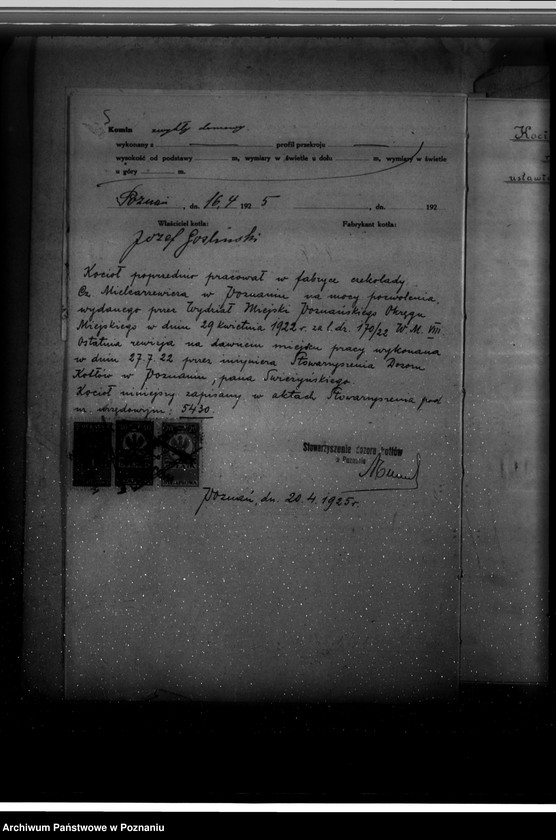 Komin zwykły domowy
wykonany z profil przekroju
wysokość od podstawy m, wymiary w świetle u dołu m, wymiary w świetle
u góry m.
Poznań, dn. 16.4 1925 , dn. 192
Właściciel kotła: Fabrykant kotła:
Józef Gośliński
Kocioł poprzednio pracował w fabryce czekolady
Cz. Mielcarzewicza w Poznaniu na mocy pozwolenia,
wydanego przez Wydział Miejski Poznańskiego Okręgu
Miejskiego w dniu 29 kwietnia 1922 r. za l. dr. 170/22 W. M. VIII
Ostatnia rewizja na dawnem miejscu pracy wykonana
w dniu 27.7.22 przez inżyniera Stowarzyszenia Dozoru
Kotłów w Poznaniu, pana Świeżyńskiego.
Kocioł niniejszy zapisany w aktach Stowarzyszenia pod
nr. urzędowym: 5430.
Stowarzyszenie dozoru kotłów
w Poznaniu
Poznań, dn. 20.4.1925 r.
Kocio
ustawi
Archiwum Państwowe w Poznaniu